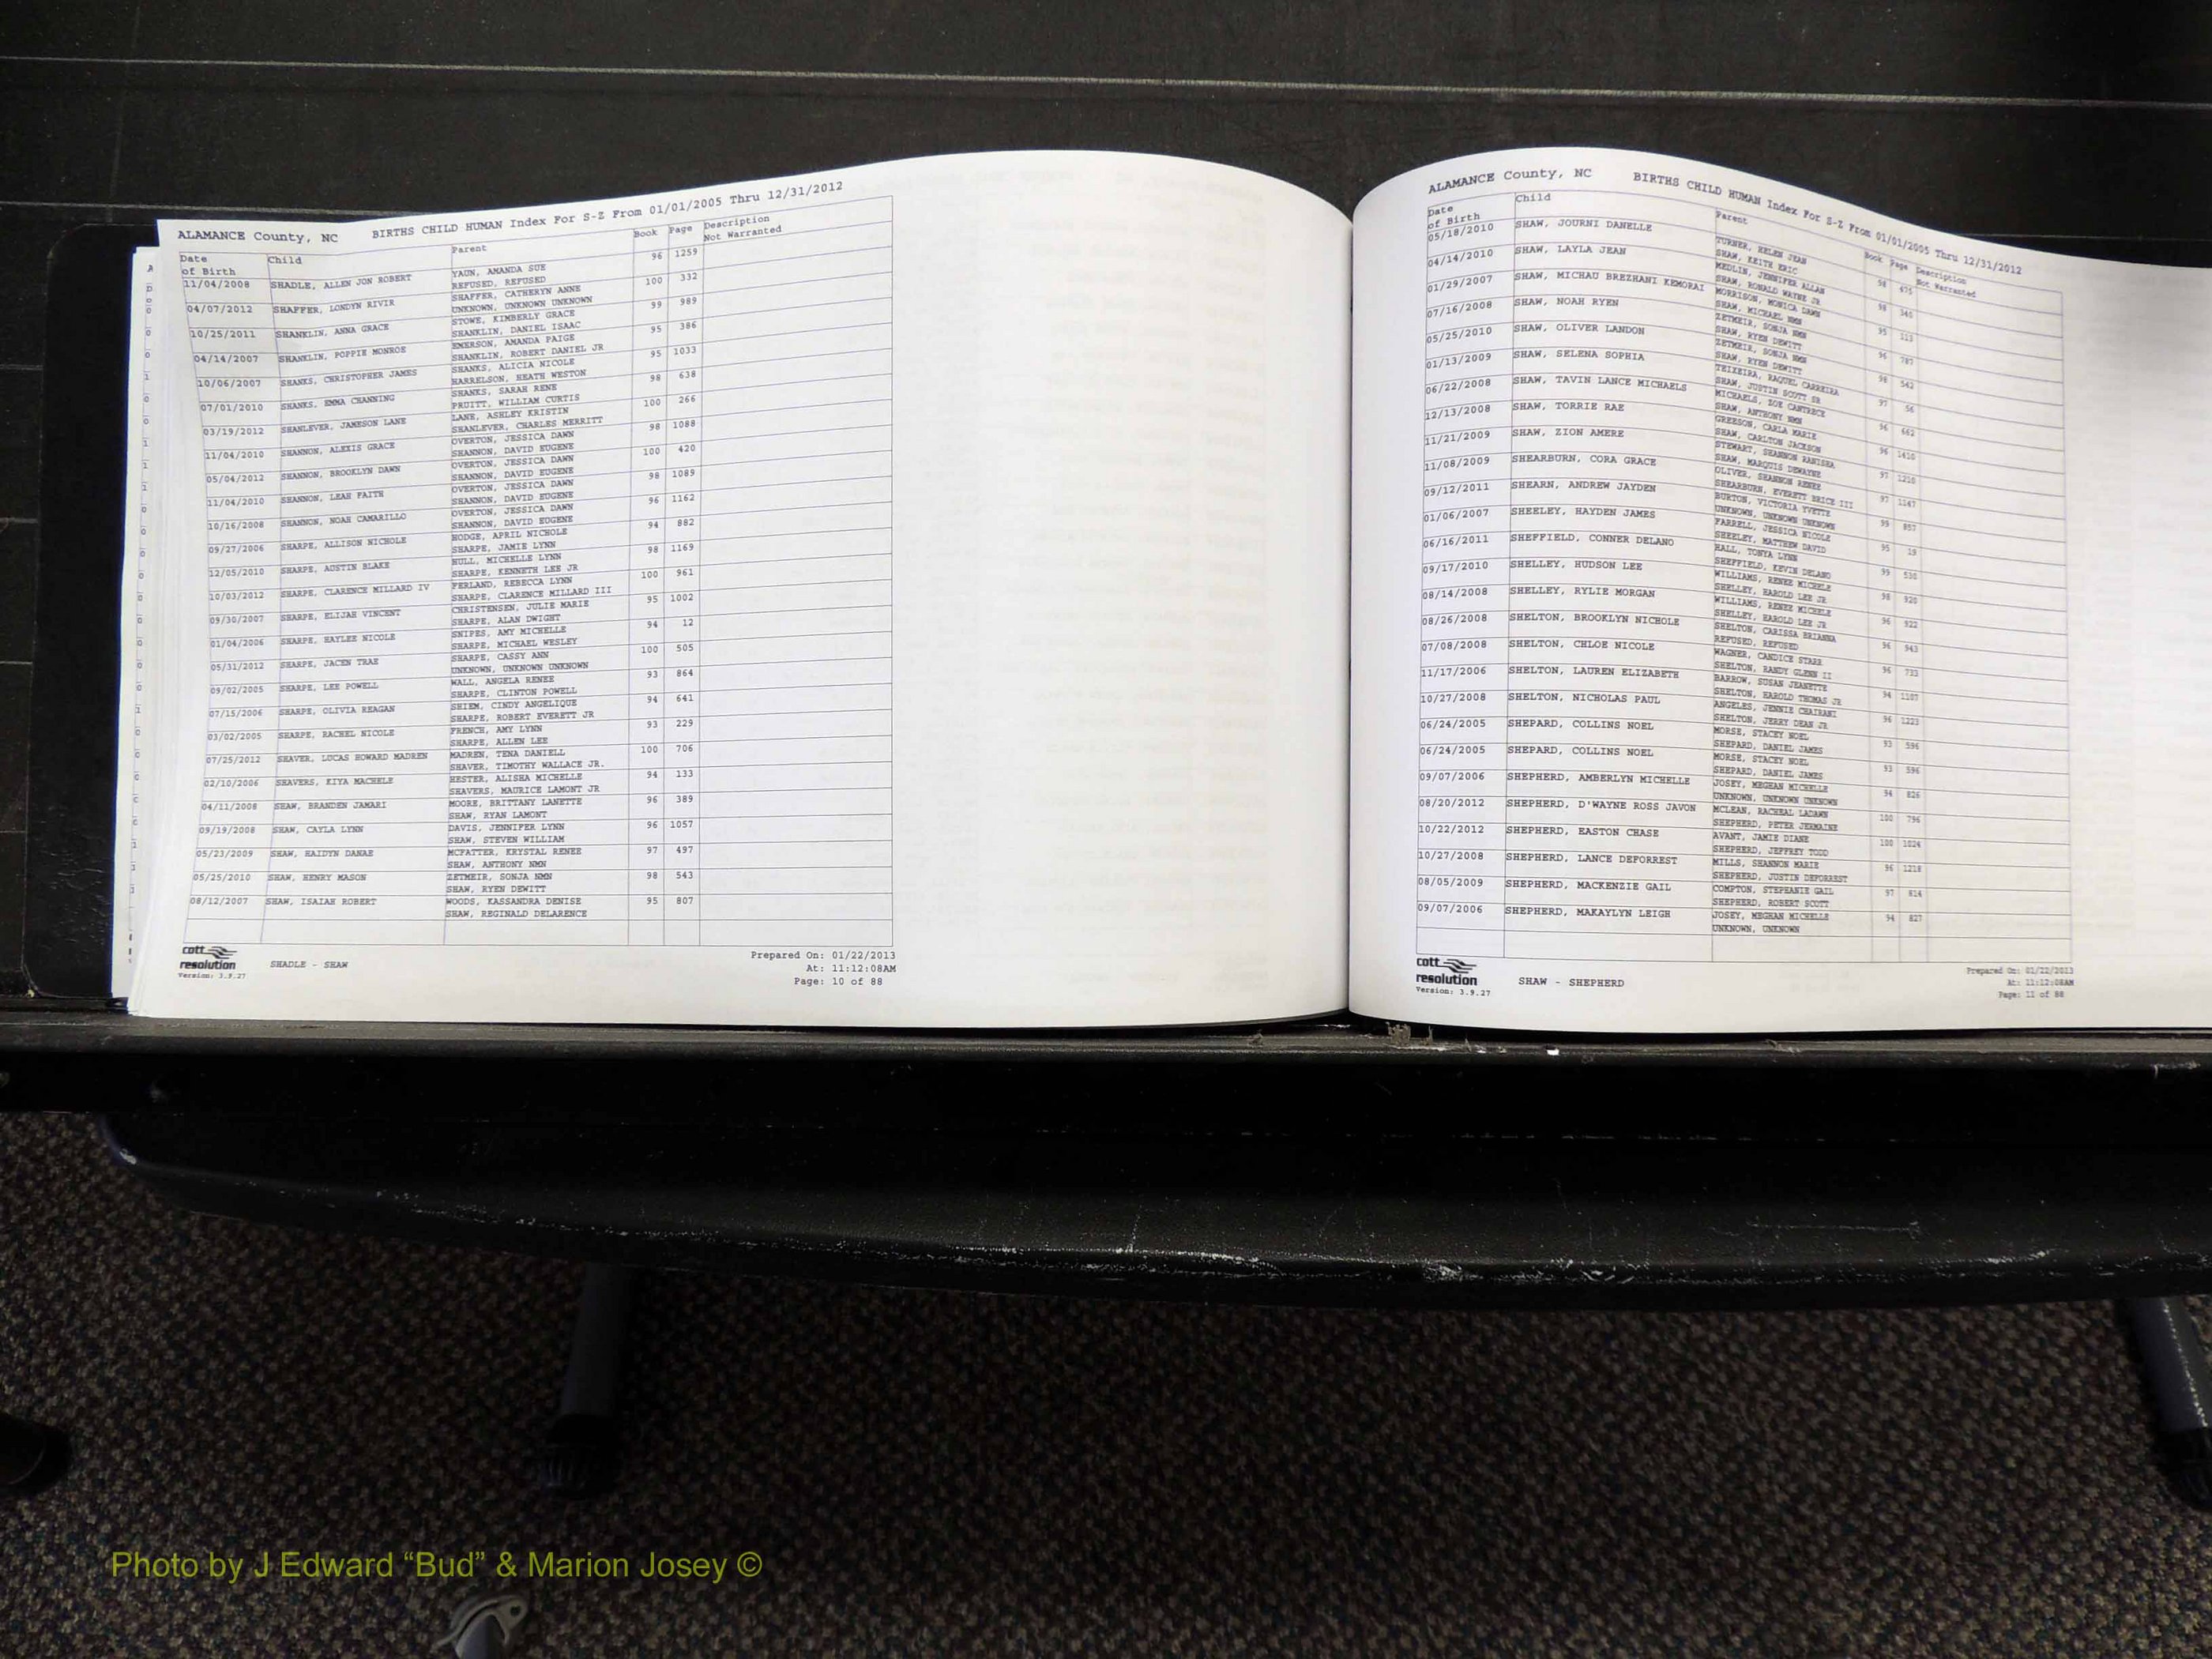 ALAMANCE County, NC BIRTHS CHILD HUMAN Index For S-Z From 01/01/2005 Thru 12/31/2012
Date of Birth Child Parent Book Page Description Not Warranted
11/04/2008 SHADLE, ALLEN JON ROBERT YAUN, AMANDA SUE 96 1259
REFUSED, REFUSED
04/07/2012 SHAFFER, LONDYN RIVIR SHAFFER, CATHERYN ANNE 100 332
UNKNOWN, UNKNOWN UNKNOWN
10/25/2011 SHANKLIN, ANNA GRACE STOWE, KIMBERLY GRACE 99 989
SHANKLIN, DANIEL ISAAC
04/14/2007 SHANKLIN, POPPIE MONROE EMERSON, AMANDA PAIGE 95 386
SHANKLIN, ROBERT DANIEL JR
10/06/2007 SHANKS, CHRISTOPHER JAMES SHANKS, ALICIA NICOLE 95 1033
HARRELSON, HEATH WESTON
07/01/2010 SHANKS, EMMA CHANNING SHANKS, SARAH RENE 98 638
PRUITT, WILLIAM CURTIS
03/19/2012 SHANLEVER, JAMESON LANE LANE, ASHLEY KRISTIN 100 266
SHANLEVER, CHARLES MERRITT
11/04/2010 SHANNON, ALEXIS GRACE OVERTON, JESSICA DAWN 98 1088
SHANNON, DAVID EUGENE
05/04/2012 SHANNON, BROOKLYN DAWN OVERTON, JESSICA DAWN 100 420
SHANNON, DAVID EUGENE
11/04/2010 SHANNON, LEAH FAITH OVERTON, JESSICA DAWN 98 1089
SHANNON, DAVID EUGENE
10/16/2008 SHANNON, NOAH CAMARILLO OVERTON, JESSICA DAWN 96 1162
SHANNON, DAVID EUGENE
09/27/2006 SHARPE, ALLISON NICHOLE HODGE, APRIL NICHOLE 94 882
SHARPE, JAMIE LYNN
12/05/2010 SHARPE, AUSTIN BLAKE HULL, MICHELLE LYNN 98 1169
SHARPE, KENNETH LEE JR
10/03/2012 SHARPE, CLARENCE MILLARD IV FERLAND, REBECCA LYNN 100 961
SHARPE, CLARENCE MILLARD III
09/30/2007 SHARPE, ELIJAH VINCENT CHRISTENSEN, JULIE MARIE 95 1002
SHARPE, ALAN DWIGHT
01/04/2006 SHARPE, HAYLEE NICOLE SNIPES, AMY MICHELLE 94 12
SHARPE, MICHAEL WESLEY
05/31/2012 SHARPE, JACEN TRAE SHARPE, CASSY ANN 100 505
UNKNOWN, UNKNOWN UNKNOWN
09/02/2005 SHARPE, LEE POWELL WALL, ANGELA RENEE 93 864
SHARPE, CLINTON POWELL
07/15/2006 SHARPE, OLIVIA REAGAN SHIEM, CINDY ANGELIQUE 94 641
SHARPE, ROBERT EVERETT JR
03/02/2005 SHARPE, RACHEL NICOLE FRENCH, AMY LYNN 93 229
SHARPE, ALLEN LEE
07/25/2012 SHAVER, LUCAS HOWARD MADREN MADREN, TENA DANIELL 100 706
SHAVER, TIMOTHY WALLACE JR.
02/10/2006 SHAVERS, KIYA MACHELE HESTER, ALISHA MICHELLE 94 133
SHAVERS, MAURICE LAMONT JR
04/11/2008 SHAW, BRANDEN JAMARI MOORE, BRITTANY LANETTE 96 389
SHAW, RYAN LAMONT
09/19/2008 SHAW, CAYLA LYNN DAVIS, JENNIFER LYNN 96 1057
SHAW, STEVEN WILLIAM
05/23/2009 SHAW, HAIDYN DANAE MCFATTER, KRYSTAL RENEE 97 497
SHAW, ANTHONY NMN
05/25/2010 SHAW, HENRY MASON ZETMEIR, SONJA NMN 98 543
SHAW, RYEN DEWITT
08/12/2007 SHAW, ISAIAH ROBERT WOODS, KASSANDRA DENISE 95 807
SHAW, REGINALD DELARENCE
cott resolution
Version: 3.9.27
SHADLE - SHAW
Prepared On: 01/22/2013
At: 11:12:08AM
Page: 10 of 88
ALAMANCE County, NC BIRTHS CHILD HUMAN Index For S-Z From 01/01/2005 Thru 12/31/2012
Date of Birth Child Parent Book Page Description Not Warranted
05/18/2010 SHAW, JOURNI DANELLE TURNER, HELEN JEAN 98 475
SHAW, KEITH ERIC
04/14/2010 SHAW, LAYLA JEAN MEDLIN, JENNIFER ALLAN 98 340
SHAW, RONALD WAYNE JR
01/29/2007 SHAW, MICHAU BREZHANI KEMORAI MORRISON, MONICA DAWN 95 113
SHAW, MICHAEL NMN
07/16/2008 SHAW, NOAH RYEN ZETMEIR, SONJA NMN 96 787
SHAW, RYEN DEWITT
05/25/2010 SHAW, OLIVER LANDON ZETMEIR, SONJA NMN 98 542
SHAW, RYEN DEWITT
01/13/2009 SHAW, SELENA SOPHIA TEIXEIRA, RAQUEL CARREIRA 97 56
SHAW, JUSTIN SCOTT SR
06/22/2008 SHAW, TAVIN LANCE MICHAELS MICHAELS, ZOE CANTRECE 96 662
SHAW, ANTHONY NMN
12/13/2008 SHAW, TORRIE RAE GREESON, CARLA MARIE 96 1410
SHAW, CARLTON JACKSON
11/21/2009 SHAW, ZION AMERE STEWART, SHANNON RANISHA 97 1210
SHAW, MARQUIS DEWAYNE
11/08/2009 SHEARBURN, CORA GRACE OLIVER, SHANNON RENEE 97 1147
SHEARBURN, EVERETT BRICE III
09/12/2011 SHEARN, ANDREW JAYDEN BURTON, VICTORIA YVETTE 99 857
UNKNOWN, UNKNOWN UNKNOWN
01/06/2007 SHEELEY, HAYDEN JAMES FARRELL, JESSICA NICOLE 95 19
SHEELEY, MATTHEW DAVID
06/16/2011 SHEFFIELD, CONNER DELANO HALL, TONYA LYNN 99 530
SHEFFIELD, KEVIN DELANO
09/17/2010 SHELLEY, HUDSON LEE WILLIAMS, RENEE MICHELE 98 920
SHELLEY, HAROLD LEE JR
08/14/2008 SHELLEY, RYLIE MORGAN WILLIAMS, RENEE MICHELE 96 922
SHELLEY, HAROLD LEE JR
08/26/2008 SHELTON, BROOKLYN NICHOLE SHELTON, CARISSA BRIANNA 96 943
REFUSED, REFUSED
07/08/2008 SHELTON, CHLOE NICOLE WAGNER, CANDICE STARR 96 733
SHELTON, RANDY GLENN II
11/17/2006 SHELTON, LAUREN ELIZABETH BARROW, SUSAN JEANETTE 94
SHELTON, HAROLD THOMAS JR
10/27/2008 SHELTON, NICHOLAS PAUL ANGELES, JENNIE CHAIRANI 96 1223
SHELTON, JERRY DEAN JR
06/24/2005 SHEPARD, COLLINS NOEL MORSE, STACEY NOEL 93 596
SHEPARD, DANIEL JAMES
06/24/2005 SHEPARD, COLLINS NOEL MORSE, STACEY NOEL 93 596
SHEPARD, DANIEL JAMES
09/07/2006 SHEPHERD, AMBERLYN MICHELLE JOSEY, MEGHAN MICHELLE 94 826
UNKNOWN, UNKNOWN UNKNOWN
08/20/2012 SHEPHERD, D'WAYNE ROSS JAVON MCLEAN, RACHEAL LADAWN 100 796
SHEPHERD, PETER JERMAINE
10/22/2012 SHEPHERD, EASTON CHASE AVANT, JAMIE DIANE 100 1024
SHEPHERD, JEFFREY TODD
10/27/2008 SHEPHERD, LANCE DEFORREST MILLS, SHANNON MARIE 96 1218
SHEPHERD, JUSTIN DEFORREST
08/05/2009 SHEPHERD, MACKENZIE GAIL COMPTON, STEPHANIE GAIL 97 814
SHEPHERD, ROBERT SCOTT
09/07/2006 SHEPHERD, MAKAYLYN LEIGH JOSEY, MEGHAN MICHELLE 94 827
UNKNOWN, UNKNOWN
cott resolution
Version: 3.9.27
SHAW - SHEPHERD
Prepared On: 01/22/2013
At: 11:12:08AM
Page: 11 of 88
Photo by J Edward “Bud” & Marion Josey ©